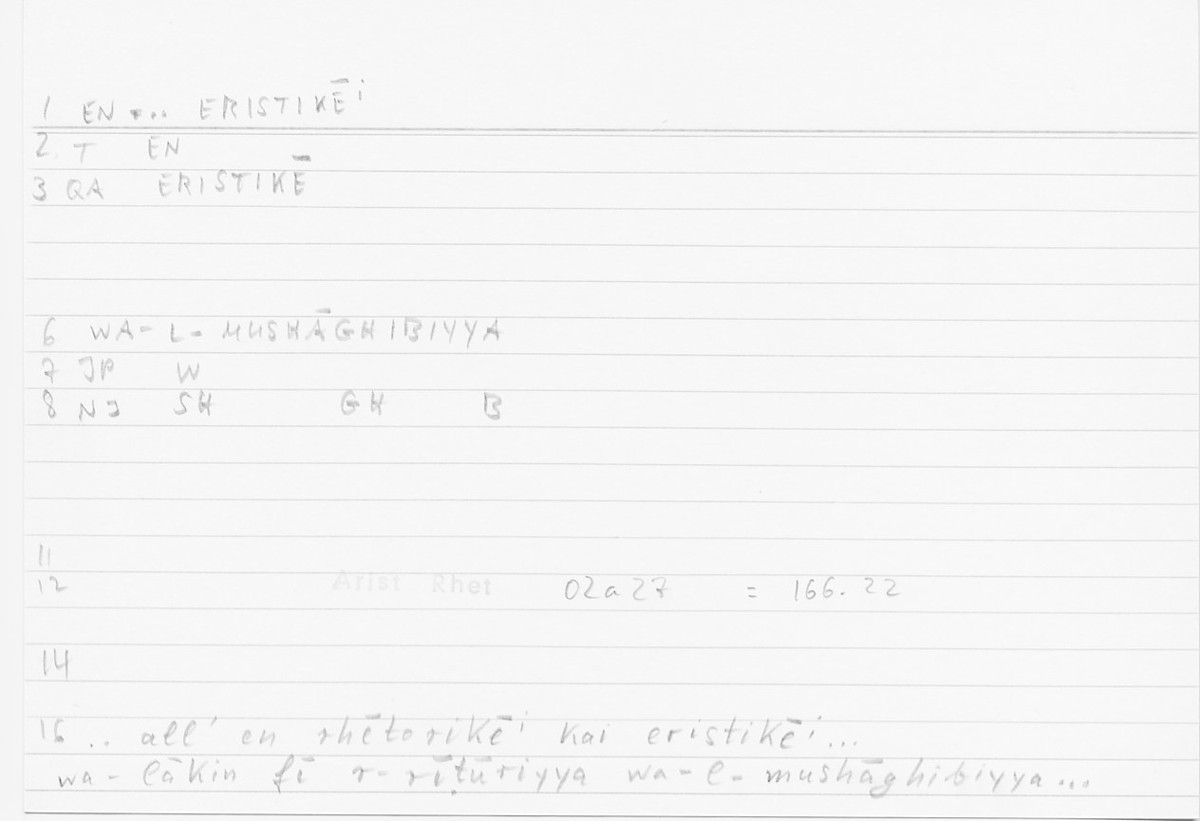 1 EN ... ERISTIKĒⁱ
2. T EN
3 QA ERISTIKĒ
6 WA-L-MUSHĀGHIBIYYA
7 JP W
8 NJ SH GH B
11
12 Arist Rhet 02a27 = 166.22
14
16 .. all' en rhētorikēⁱ kai eristikēⁱ...
wa-lākin fī r-rīṭūriyya wa-l-mushāghibiyya...